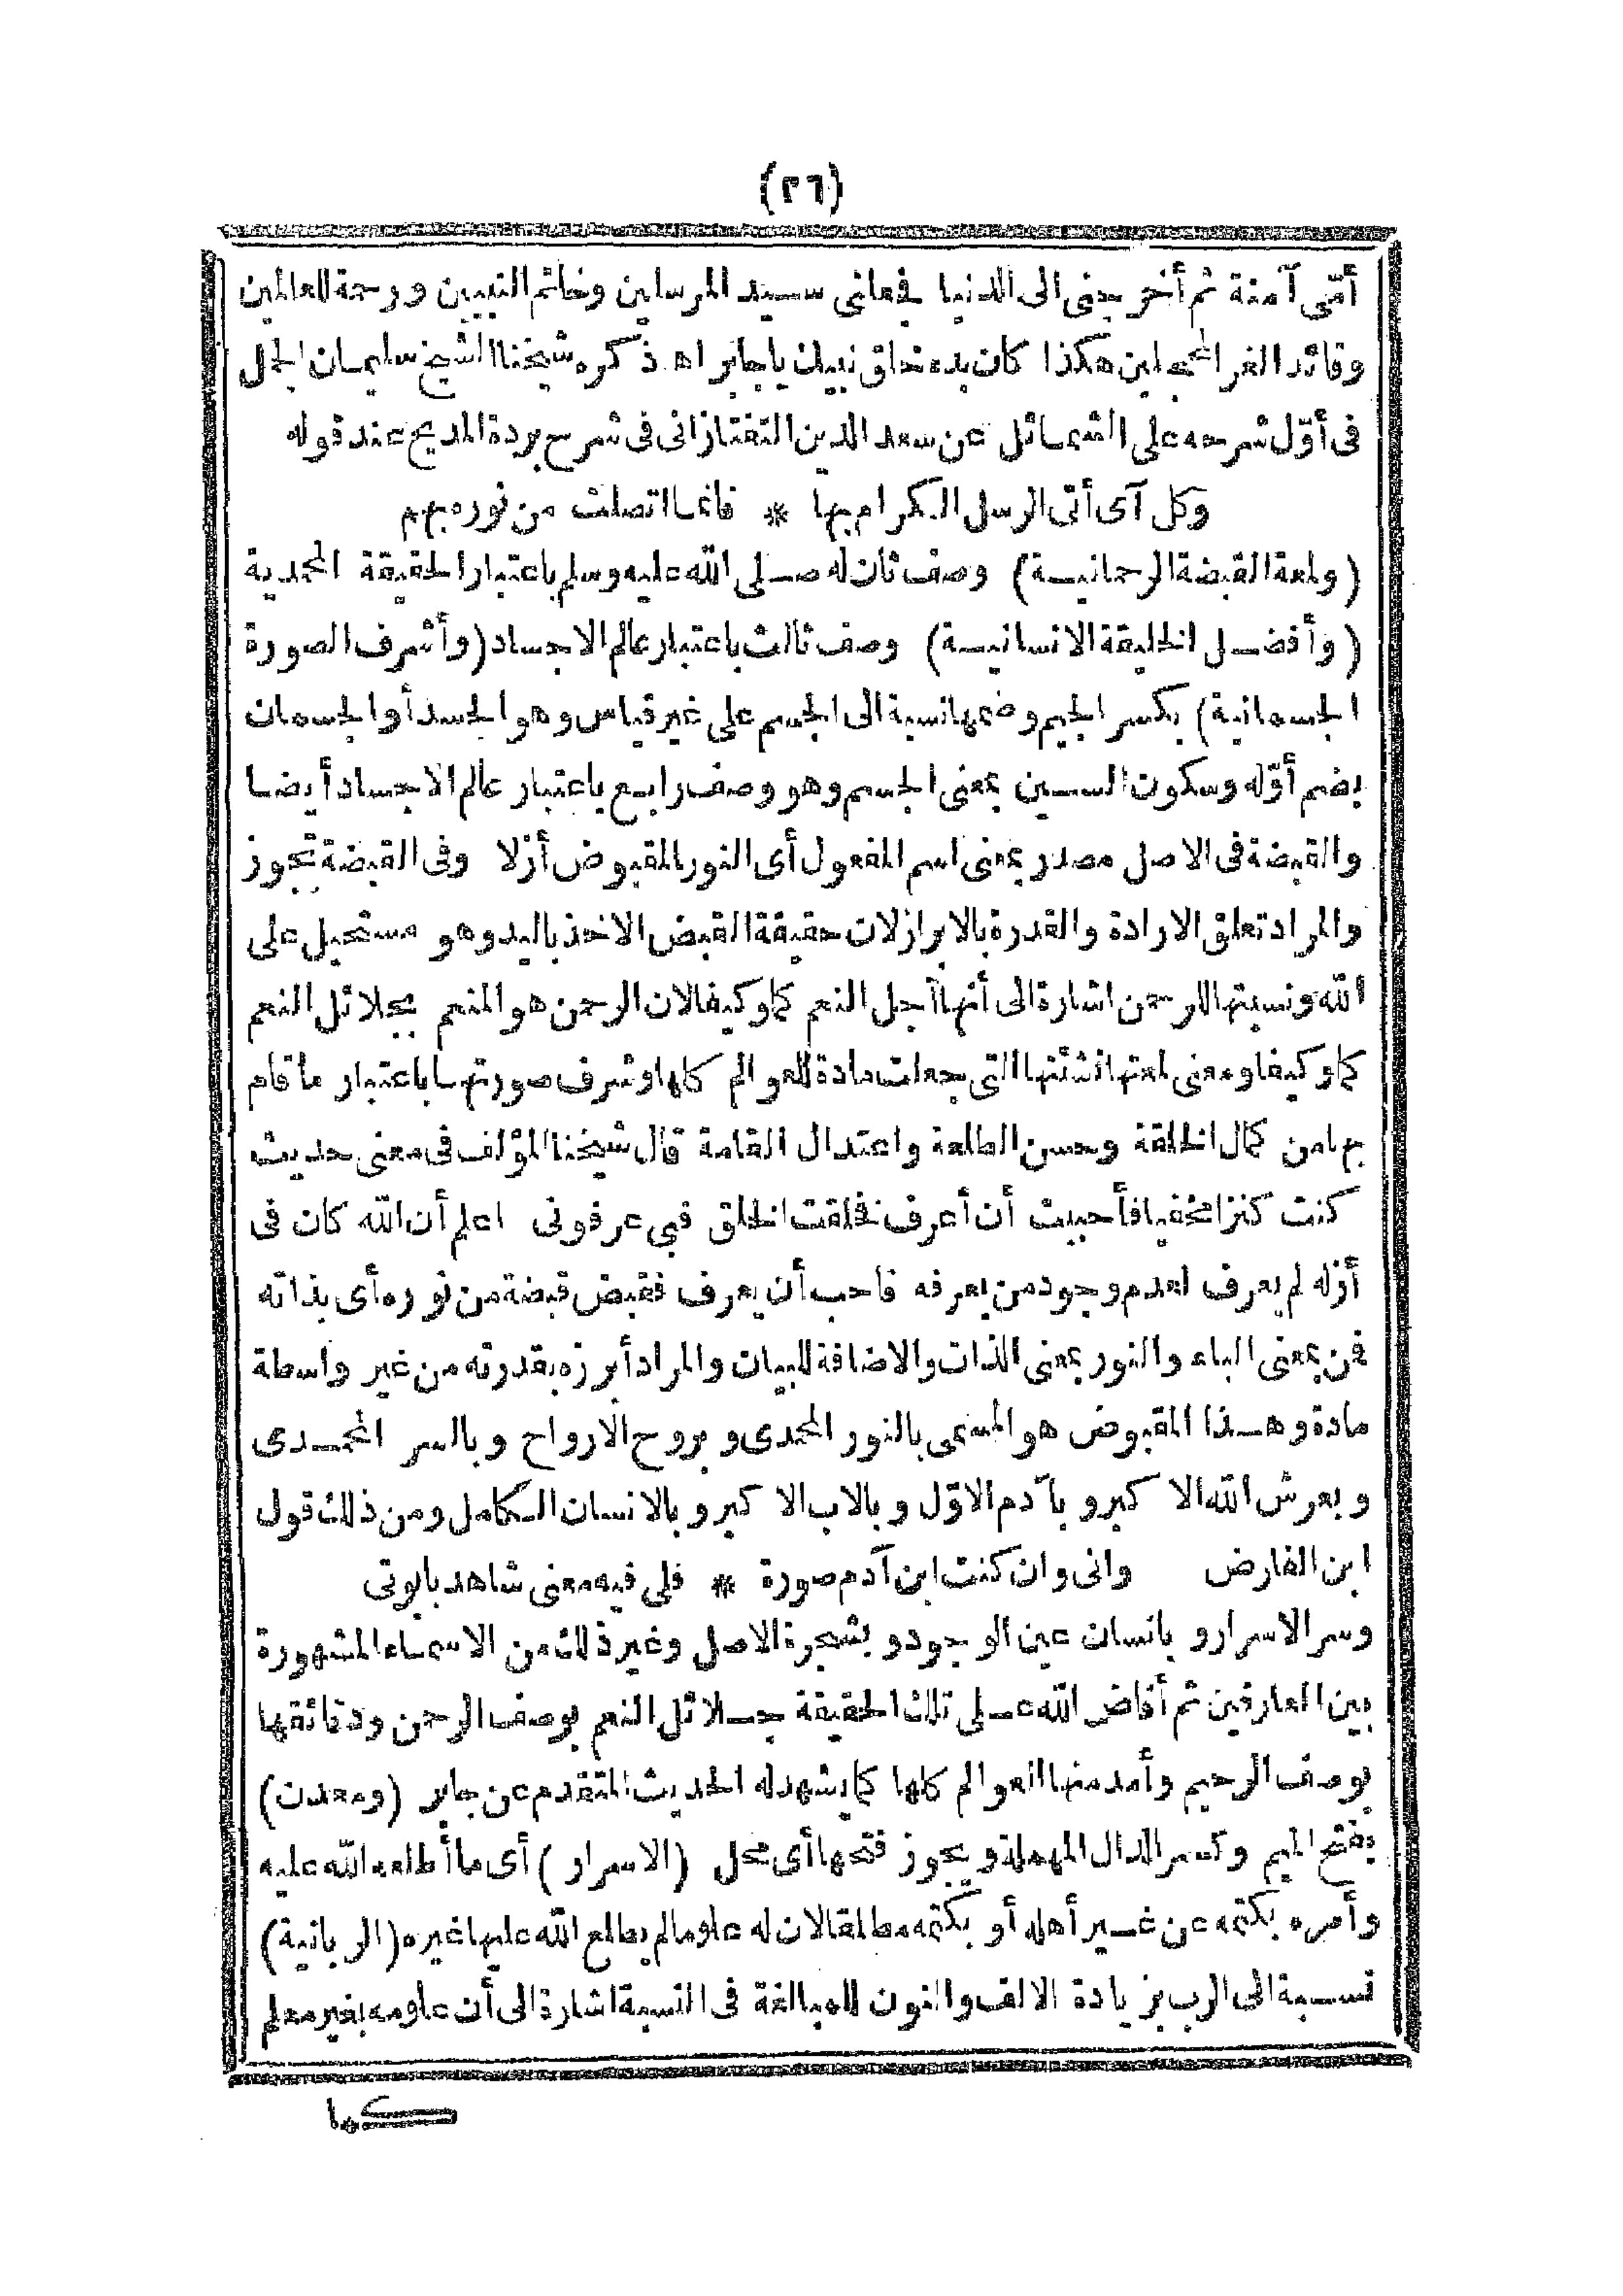 (٢٦)
أمّى آمنة ثم أخرجنى الى الدنيا فجعلنى سيد المرسلين وخاتم النبيين ورحمة للعالمين
وقائد الغر المحجلين هكذا كان بدء خلق نبيك يا جابر اه ذكره شيخنا الشيخ سليمان الجمل
فى أوّل شرحه على الشمائل عن سعد الدين التفتازانى فى شرح بردة المديح عند قوله
وكل آى أتى الرسل الكرام بها * فانما اتصلت من نوره بهم
(ولمعة القبضة الرحمانية) وصف ثان له صلى الله عليه وسلم باعتبار الحقيقة المحمدية
(وأفضل الخليقة الانسانية) وصف ثالث باعتبار عالم الاجساد (وأشرف الصورة
الجسمانية) بكسر الجيم وضمها نسبة الى الجسم على غير قياس وهو الجسد أو الجسمان
بضم أوّله وسكون السين بمعنى الجسم وهو وصف رابع باعتبار عالم الاجساد أيضا
والقبضة فى الاصل مصدر بمعنى اسم المفعول أى النور المقبوض أزلا وفى القبضة تجوز
والمراد تعلق الارادة والقدرة بالابراز لان حقيقة القبض الاخذ باليد وهو مستحيل على
الله ونسبتها للرحمن اشارة الى أنها أجل النعم كما وكيفا لان الرحمن هو المنعم بجلائل النعم
كما وكيفا ومعنى لمعتها نشئتها التى جعلت مادة للعوالم كلها وشرف صورتها باعتبار ما قام
بها من كمال الخلقة وحسن الطلعة واعتدال القامة قال شيخنا المؤلف فى معنى حديث
كنت كنزا مخفيا فأحببت أن أعرف فخلقت الخلق فبى عرفونى اعلم أن الله كان فى
أزله لم يعرف لعدم وجود من يعرفه فاحب أن يعرف فقبض قبضة من نوره أى بذاته
فمن بمعنى الباء والنور بمعنى الذات والاضافة للبيان والمراد أبرزه بقدرته من غير واسطة
مادة وهذا المقبوض هو المسمى بالنور المحمدى وبروح الارواح وبالسر المحمدى
وبعرش الله الاكبر وبآدم الاوّل وبالاب الاكبر وبالانسان الكامل ومن ذلك قول
ابن الفارض وانى وان كنت ابن آدم صورة * فلى فيه معنى شاهد بابوتى
وسر الاسرار وبانسان عين الوجود وبشجرة الاصل وغير ذلك من الاسماء المشهورة
بين العارفين ثم أفاض الله على تلك الحقيقة جلائل النعم بوصف الرحمن ودقائقها
بوصف الرحيم وأمد منها العوالم كلها كما يشهد له الحديث المتقدم عن جابر (ومعدن)
بفتح الميم وكسر الدال المهملة ويجوز فتحها أى محل (الاسرار) أى ما أطلعه الله عليه
وأمره بكتمه عن غير أهله أو بكتمه مطلقا لان له علوما لم يطلع الله عليها غيره (الربانية)
نسبة الى الرب بزيادة الالف والنون للمبالغة فى النسبة اشارة الى أن علومه بغير معلم
كما